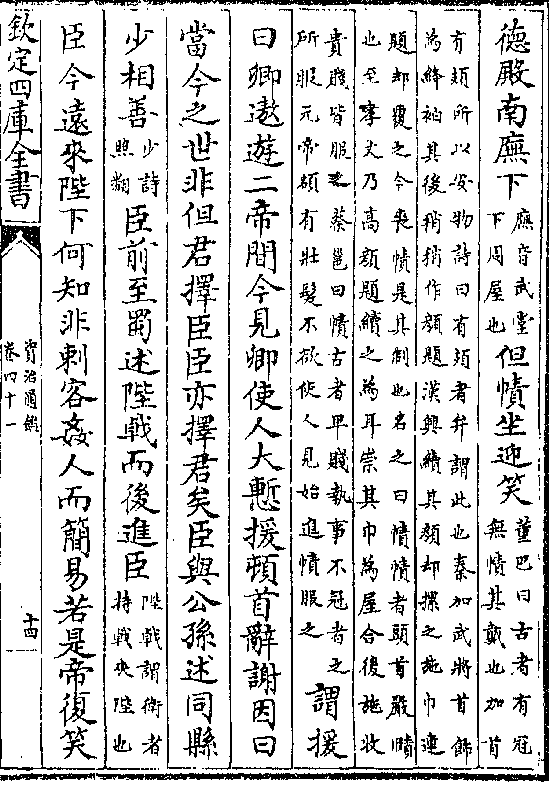 德殿南廡下廡音武堂下周屋也但幘坐迎笑董巴曰古者有冠無幘其戴也加首
有頍所以安物詩曰有頍者弁謂此也秦加武將首飾
為絳袙其後稍稍作顔題漢興續其顔却摞之施巾連
題却覆之今喪幘是其制也名之曰幘幘者頭首嚴賾
也至孝文乃高顔題續之為耳崇其巾為屋合後施收
貴賤皆服之蔡邕曰幘古者卑賤執事不冠者之
所服元帝頟有壯髮不欲使人見始進幘服之謂援
曰卿遨遊二帝間今見卿使人大慙援頓首辭謝因曰
當今之世非但君擇臣臣亦擇君矣臣與公孫述同縣
少相善少詩照翻臣前至蜀述陛戟而後進臣陛戟謂衛者持戟夾陛也
臣今遠來陛下何知非刺客姦人而簡易若是帝復笑
欽定四庫全書
資治通鑑
卷四十一
十四